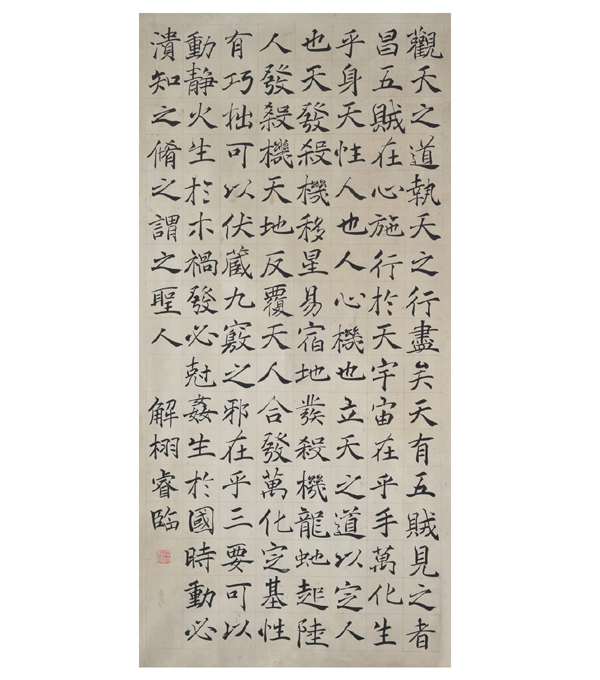 觀天之道執天之行盡矣天有五賊見之者
昌五賊在心施行於天宇宙在乎手萬化生
乎身天性人也人心機也立天之道以定人
也天發殺機移星易宿地發殺機龍虵起陸
人發殺機天地反覆天人合發萬化定基性
有巧拙可以伏藏九竅之邪在乎三要可以
動靜火生於木禍發必尅姦生於國時動必
潰知之脩之謂之聖人 解栩睿臨